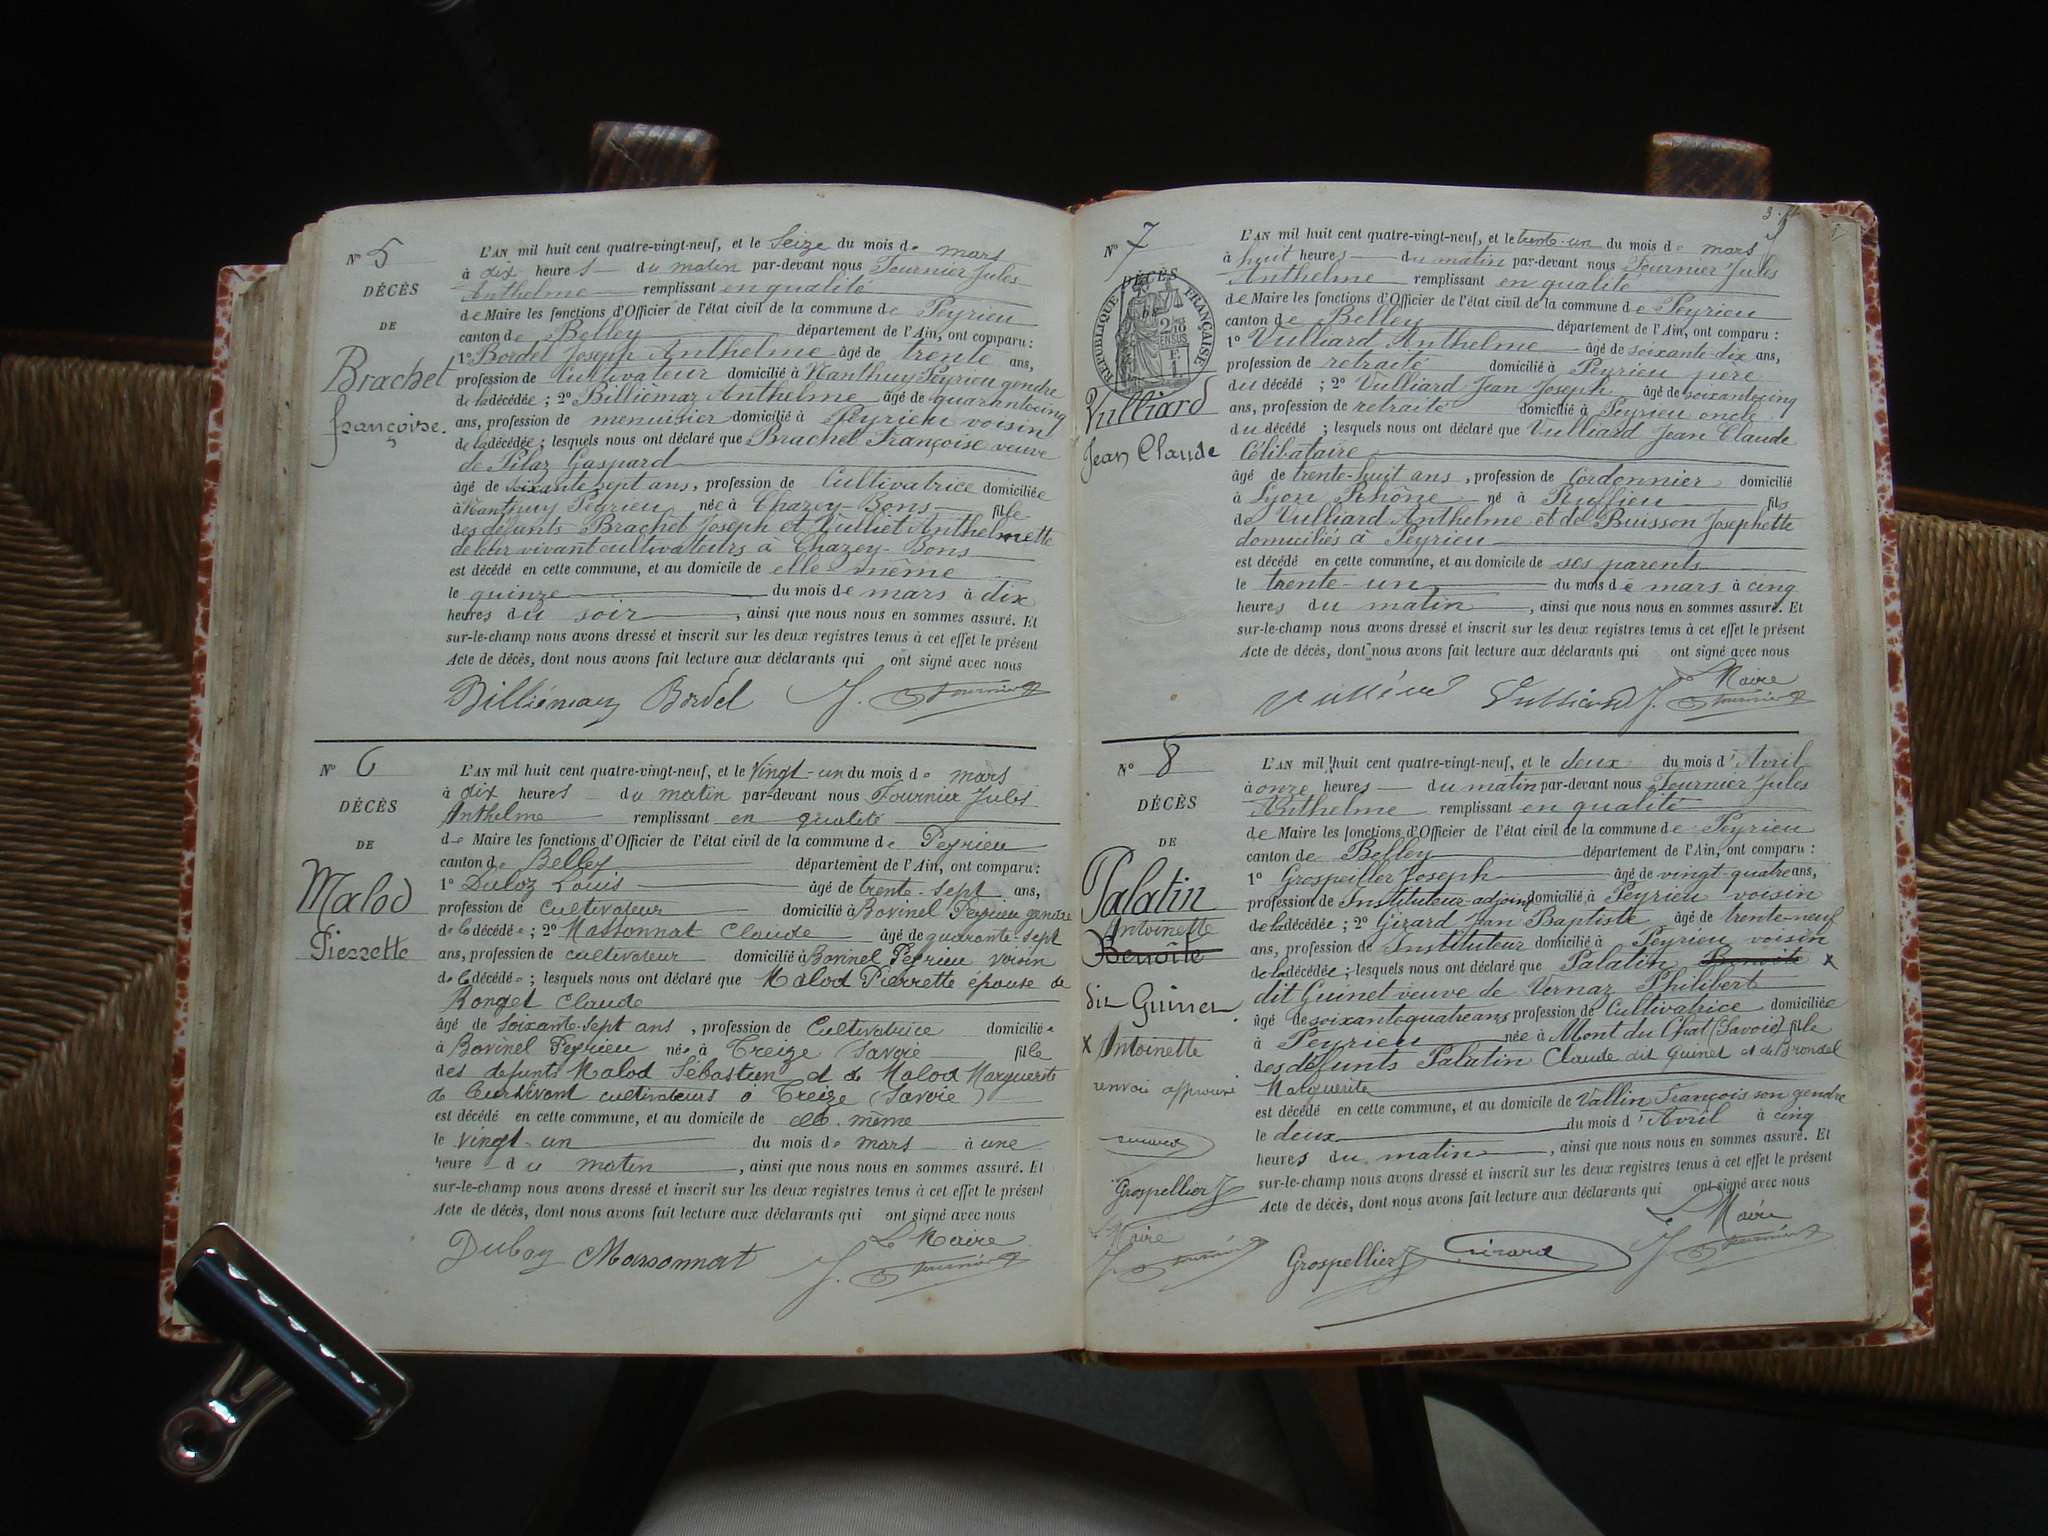 N° 5
DÉCÈS
DE
Brachet
françoise.
L'AN mil huit cent quatre-vingt-neuf, et le Seize du mois de mars
à dix heures du matin par-devant nous Fournier Jules
Anthelme remplissant en qualité
de Maire les fonctions d'Officier de l'état civil de la commune de Peyrieu
canton de Belley département de l'Ain, ont comparu :
1° Bordel Joseph Anthelme âgé de trente ans,
profession de Cultivateur domicilié à Nanthuy Peyrieu gendre
de la décédée ; 2° Billiémaz Anthelme âgé de quarantecinq
ans, profession de menuisier domicilié à Peyrieu voisin
de la décédée ; lesquels nous ont déclaré que Brachet Françoise veuve
de Pilaz Gaspard
âgé de soixante sept ans, profession de Cultivatrice domiciliée
à Nanthuy Peyrieu née à Chazey-Bons fille
des défunts Brachet Joseph et Vulliet Anthelmette
de leur vivant cultivateurs à Chazey-Bons
est décédé en cette commune, et au domicile de elle même
le quinze du mois de mars à dix
heures du soir, ainsi que nous nous en sommes assuré. Et
sur-le-champ nous avons dressé et inscrit sur les deux registres tenus à cet effet le présent
Acte de décès, dont nous avons fait lecture aux déclarants qui ont signé avec nous
Billiémaz Bordel J. Fournier
N° 6
DÉCÈS
DE
Malod
Pierrette
L'AN mil huit cent quatre-vingt-neuf, et le Vingt-un du mois de mars
à dix heures du matin par-devant nous Fournier Jules
Anthelme remplissant en qualité
de Maire les fonctions d'Officier de l'état civil de la commune de Peyrieu
canton de Belley département de l'Ain, ont comparu :
1° Duloz Louis âgé de trente-sept ans,
profession de cultivateur domicilié à Bovinel Peyrieu gendre
de la décédée ; 2° Massonnat Claude âgé de quarante-sept
ans, profession de cultivateur domicilié à Bovinel Peyrieu voisin
de la décédée ; lesquels nous ont déclaré que Malod Pierrette épouse de
Ronget Claude
âgé de soixante-sept ans, profession de Cultivatrice domiciliée
à Bovinel Peyrieu née à Treize (Savoie fille
des defunts Malod Sébastien et de Malod Marguerite
de leur vivant cultivateurs à Treize (Savoie)
est décédé en cette commune, et au domicile de elle même
le vingt-un du mois de mars à une
heure du matin, ainsi que nous nous en sommes assuré. Et
sur-le-champ nous avons dressé et inscrit sur les deux registres tenus à cet effet le présent
Acte de décès, dont nous avons fait lecture aux déclarants qui ont signé avec nous
Le Maire
Duloz Massonnat J. Fournier
N° 7
DÉCÈS
DE
RÉPUBLIQUE FRANÇAISE
Vulliard
Jean Claude
L'AN mil huit cent quatre-vingt-neuf, et le trente-un du mois de mars
à huit heures du matin par-devant nous Fournier Jules
Anthelme remplissant en qualité
de Maire les fonctions d'Officier de l'état civil de la commune de Peyrieu
canton de Belley département de l'Ain, ont comparu :
1° Vulliard Anthelme âgé de soixante-dix ans,
profession de retraité domicilié à Peyrieu père
du décédé ; 2° Vulliard Jean Joseph âgé de soixantecinq
ans, profession de retraité domicilié à Peyrieu oncle
du décédé ; lesquels nous ont déclaré que Vulliard Jean Claude
Célibataire
âgé de trente-huit ans, profession de Cordonnier domicilié
à Lyon Rhône né à Ruffieu fils
de Vulliard Anthelme et de Buisson Josephette
domiciliés à Peyrieu
est décédé en cette commune, et au domicile de ses parents
le trente-un du mois de mars à cinq
heures du matin, ainsi que nous nous en sommes assuré. Et
sur-le-champ nous avons dressé et inscrit sur les deux registres tenus à cet effet le présent
Acte de décès, dont nous avons fait lecture aux déclarants qui ont signé avec nous
Le Maire
Vulliard Vulliard J. Fournier
N° 8
DÉCÈS
DE
Palatin
Antoinette
Benoîte
dit Guinet
x Antoinette
renvoi approuvé
Girard
Grospellier J
Le Maire
J. Fournier
L'AN mil huit cent quatre-vingt-neuf, et le deux du mois d'Avril
à onze heures du matin par-devant nous Fournier Jules
Anthelme remplissant en qualité
de Maire les fonctions d'Officier de l'état civil de la commune de Peyrieu
canton de Belley département de l'Ain, ont comparu :
1° Grospeillier Joseph âgé de vingt-quatre ans,
profession de Instituteur-adjoint domicilié à Peyrieu voisin
de la décédée ; 2° Girard Jean Baptiste âgé de trente-neuf
ans, profession de Instituteur domicilié à Peyrieu voisin
de la décédée ; lesquels nous ont déclaré que Palatin Benoîte x
dit Guinet veuve de Vernaz Philibert
âgé de soixantequatre ans profession de Cultivatrice domiciliée
à Peyrieu née à Mont du Chat (Savoie) fille
des défunts Palatin Claude dit Guinet et de Brondel
Marguerite
est décédé en cette commune, et au domicile de Vallin François son gendre
le deux du mois d'Avril à cinq
heures du matin, ainsi que nous nous en sommes assuré. Et
sur-le-champ nous avons dressé et inscrit sur les deux registres tenus à cet effet le présent
Acte de décès, dont nous avons fait lecture aux déclarants qui ont signé avec nous
Le Maire
Grospellier J Girard J. Fournier